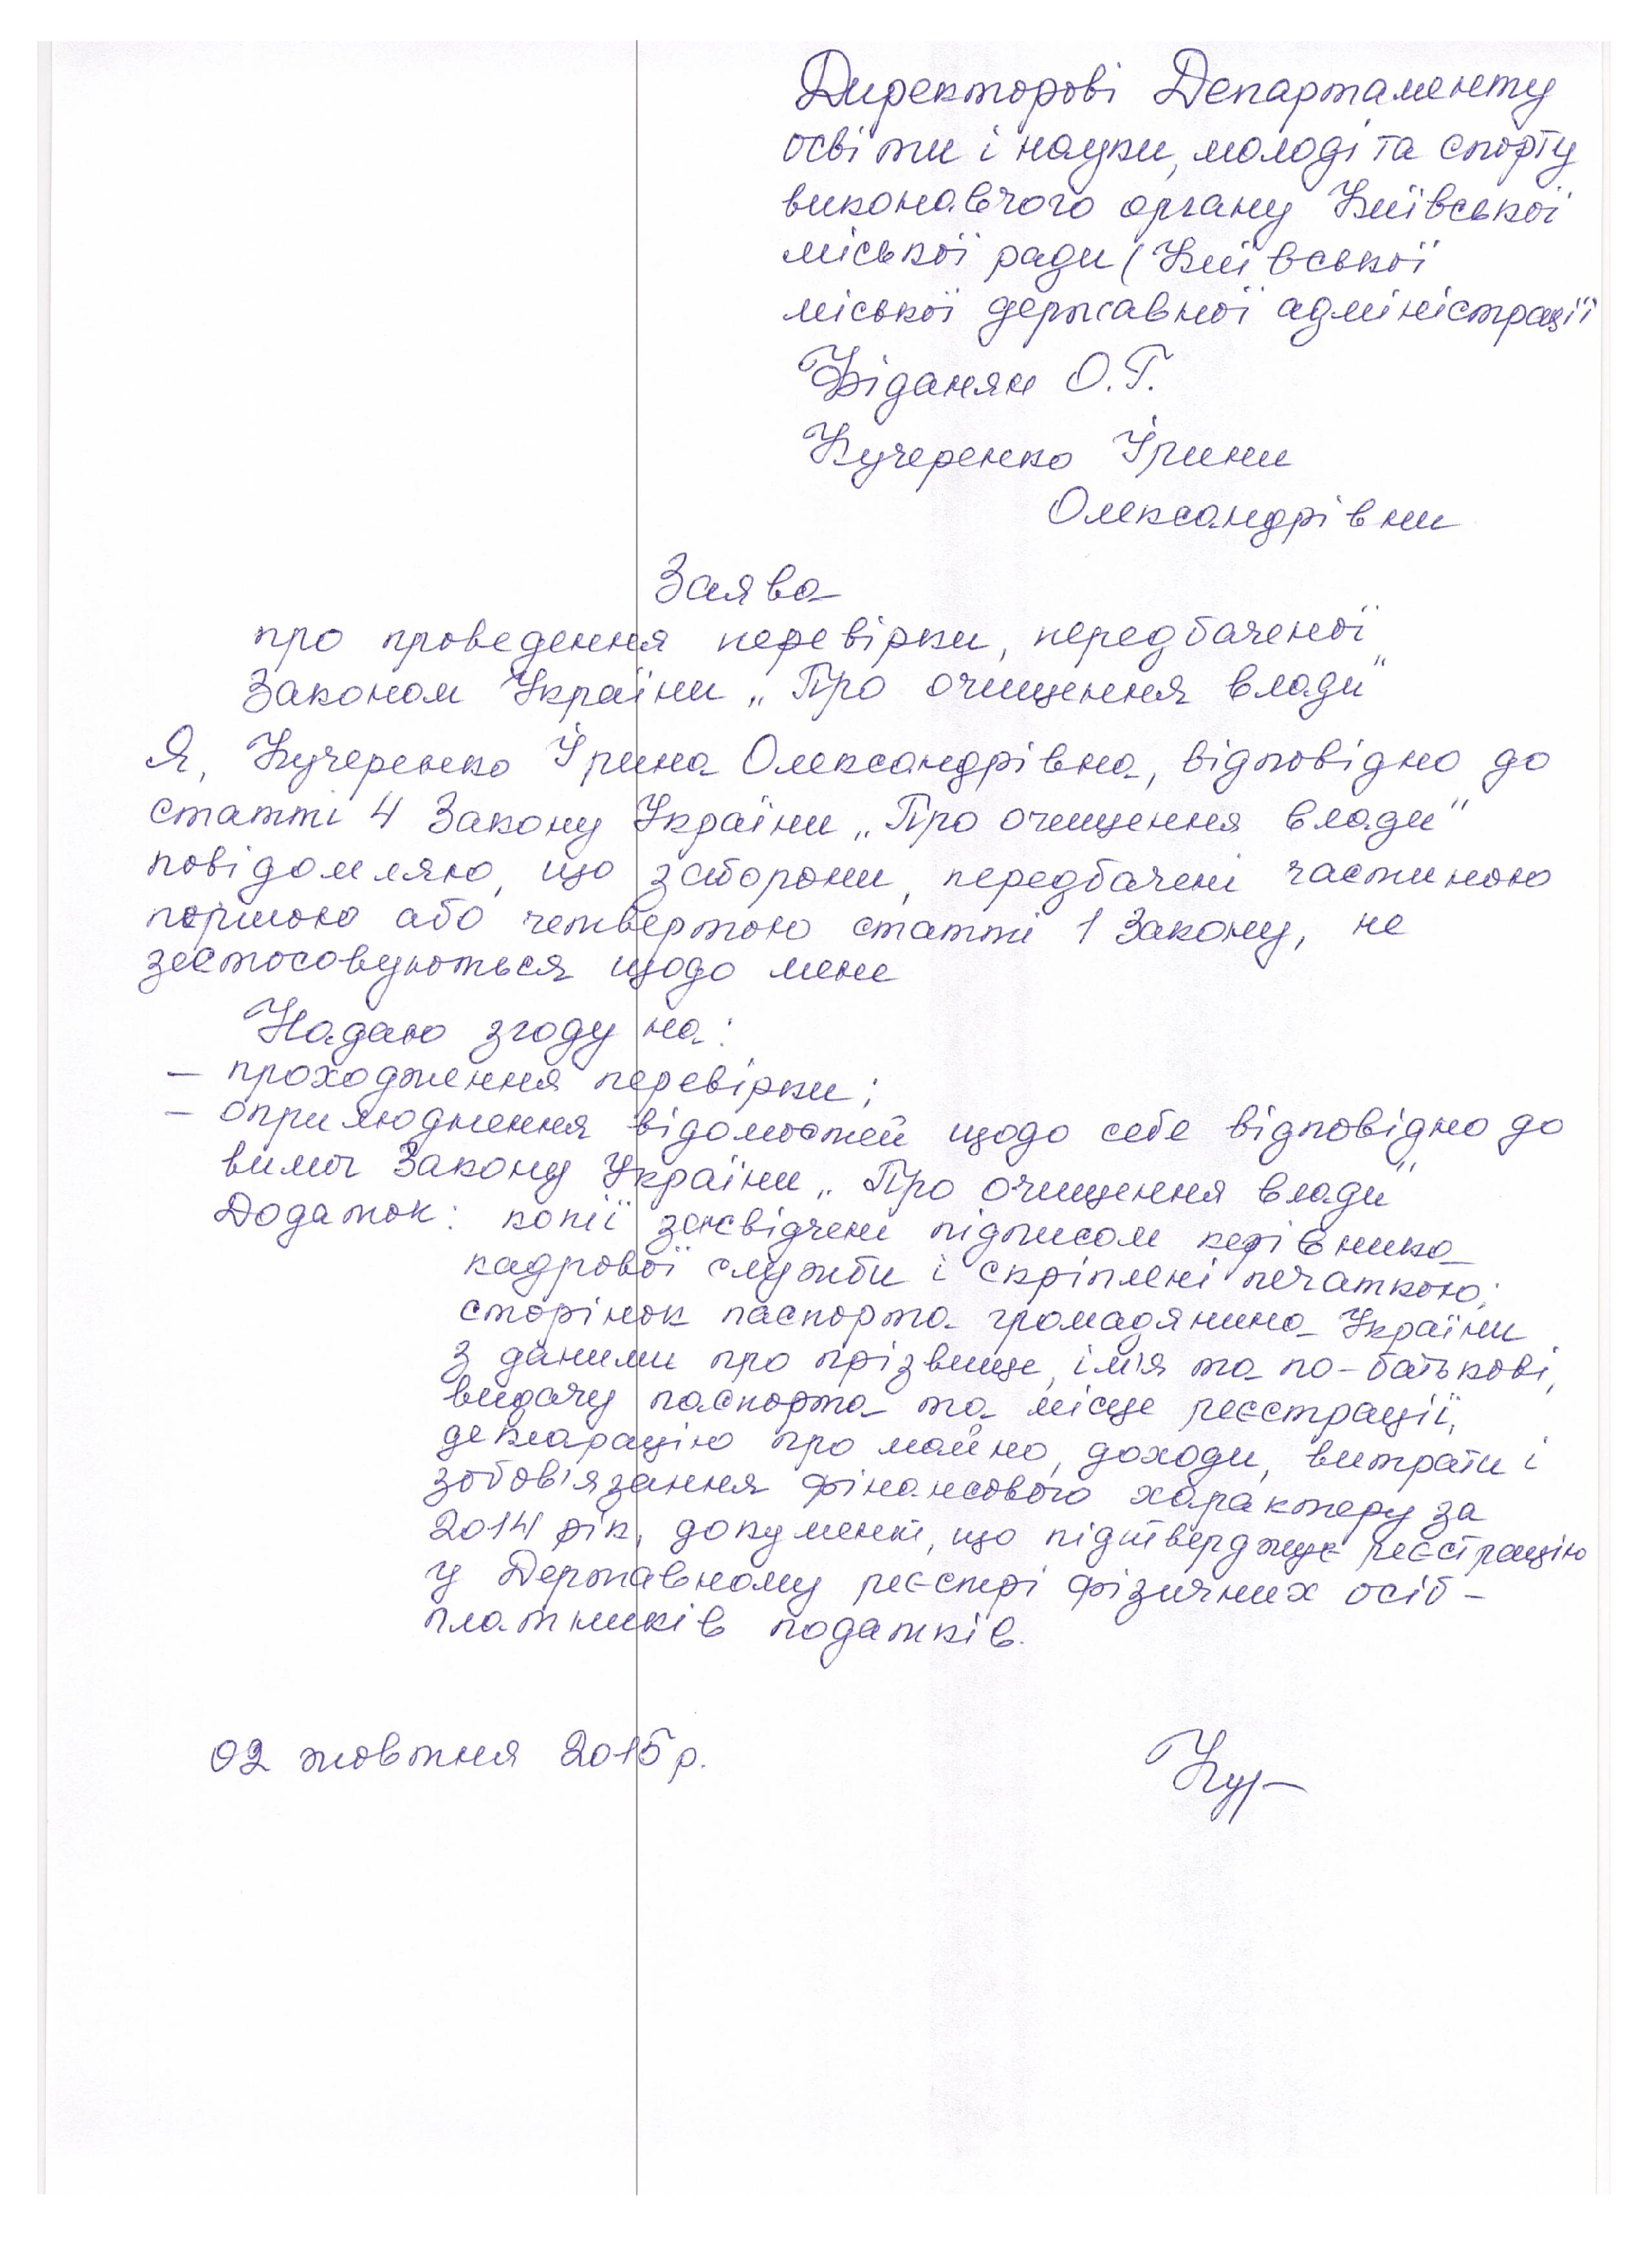 Директорові Департаменту
освіти і науки, молоді та спорту
виконавчого органу Київської
міської ради (Київської
міської державної адміністрації
Фіданян О.Г.
Кучеренко Ірини
Олександрівни
Заява
про проведення перевірки, передбаченої
Законом України „Про очищення влади"
Я, Кучеренко Ірина Олександрівна, відповідно до
статті 4 Закону України „Про очищення влади"
повідомляю, що заборони, передбачені частиною
першою або четвертою статті 1 Закону, не
застосовуються щодо мене
Надаю згоду на:
– проходження перевірки;
– оприлюднення відомостей щодо себе відповідно до
вимог Закону України „Про очищення влади"
Додаток: копії засвідчені підписом керівника
кадрової служби і скріплені печаткою:
сторінок паспорта громадянина України
з даними про прізвище, ім'я та по-батькові,
видачу паспорта та місце реєстрації,
декларацію про майно, доходи, витрати і
зобов'язання фінансового характеру за
2014 рік, документ, що підтверджує реєстрацію
у Державному реєстрі фізичних осіб –
платників податків.
02 жовтня 2015 р.